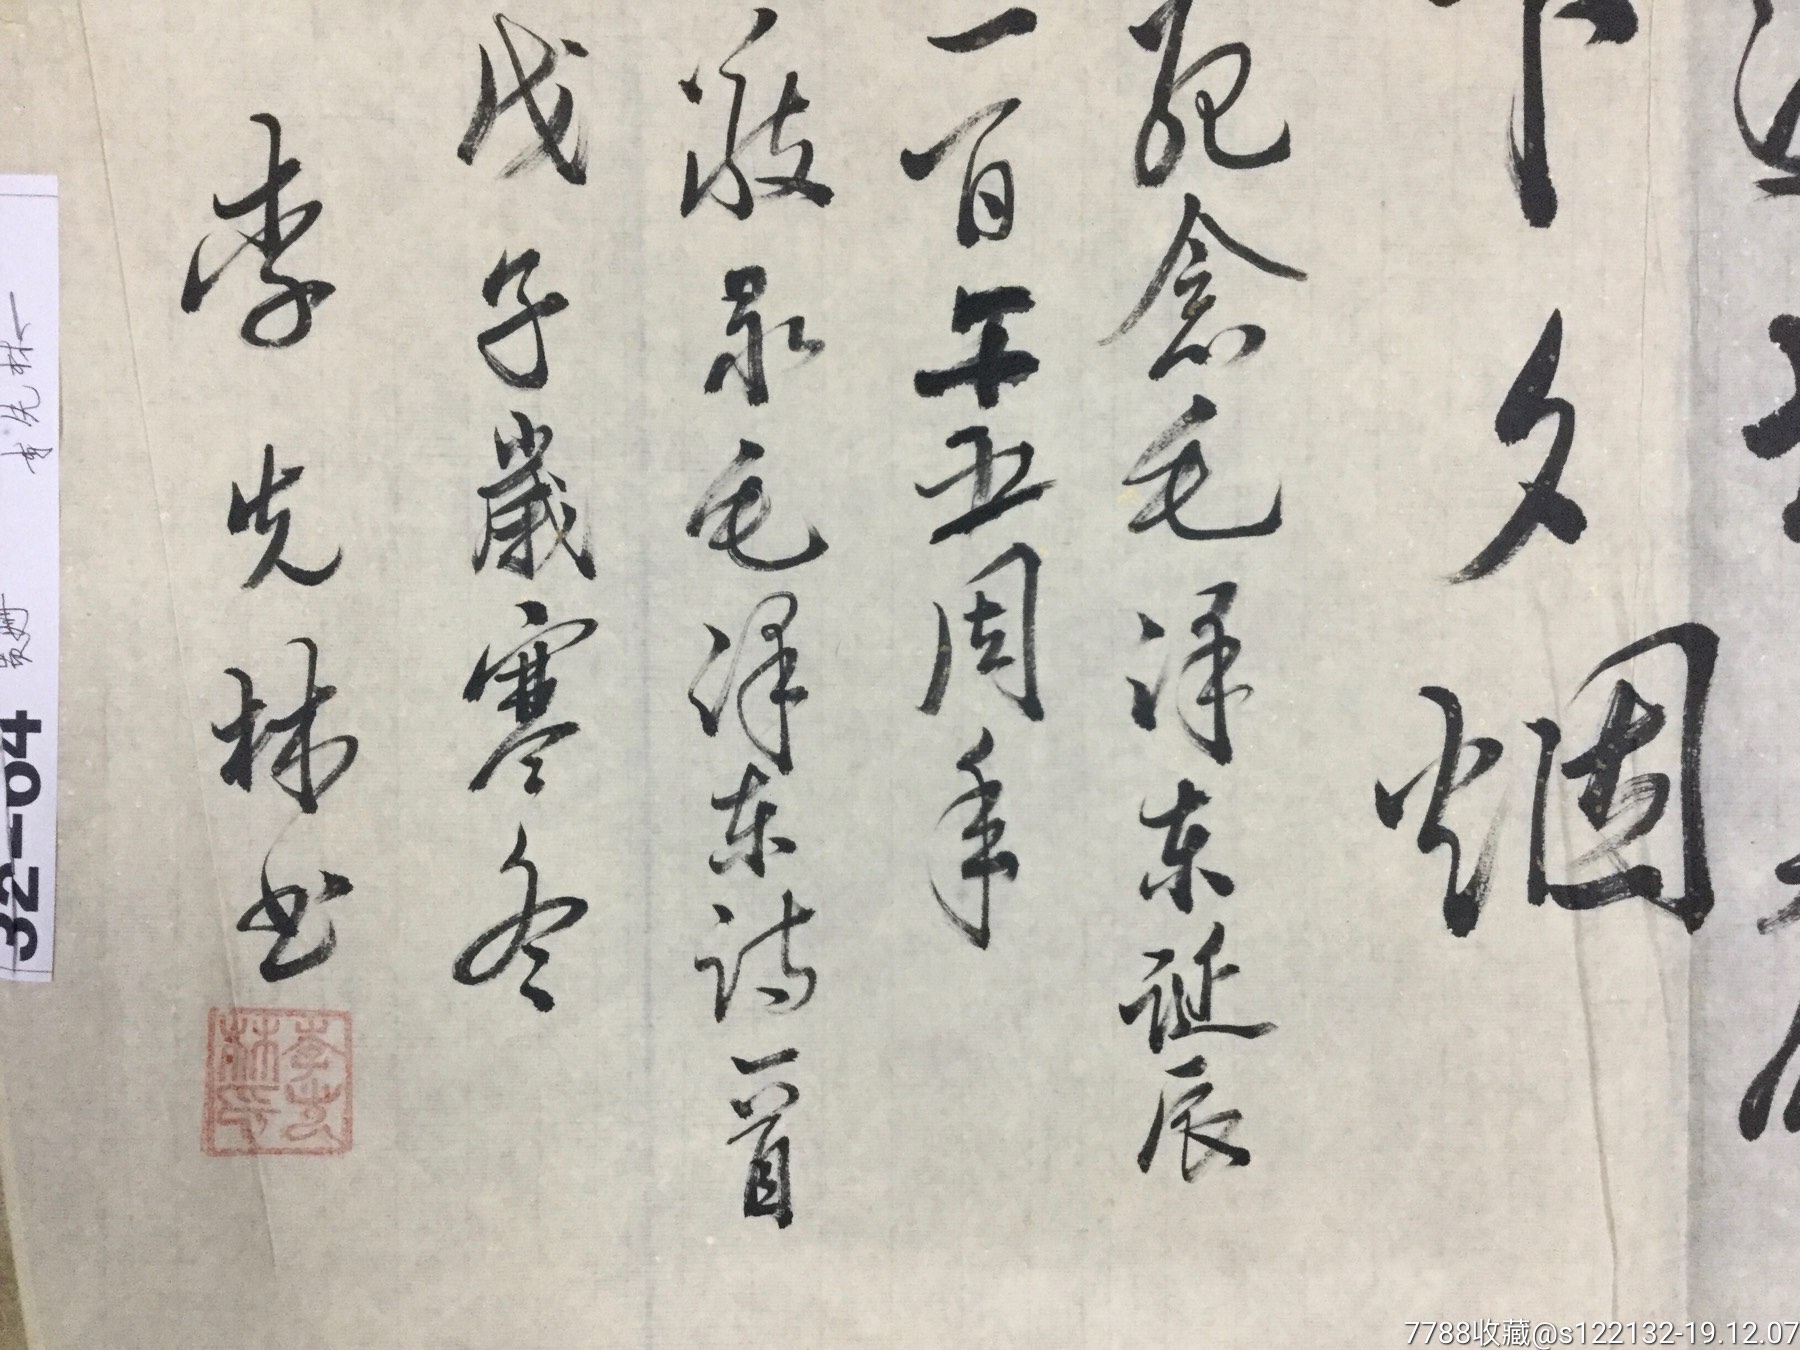 下夕烟
纪念毛泽东诞辰
一百一十五周年
敬录毛泽东诗一首
戊子歲寒冬
李先林书
李先林印
李先林
32-04
7788收藏@s122132-19.12.07